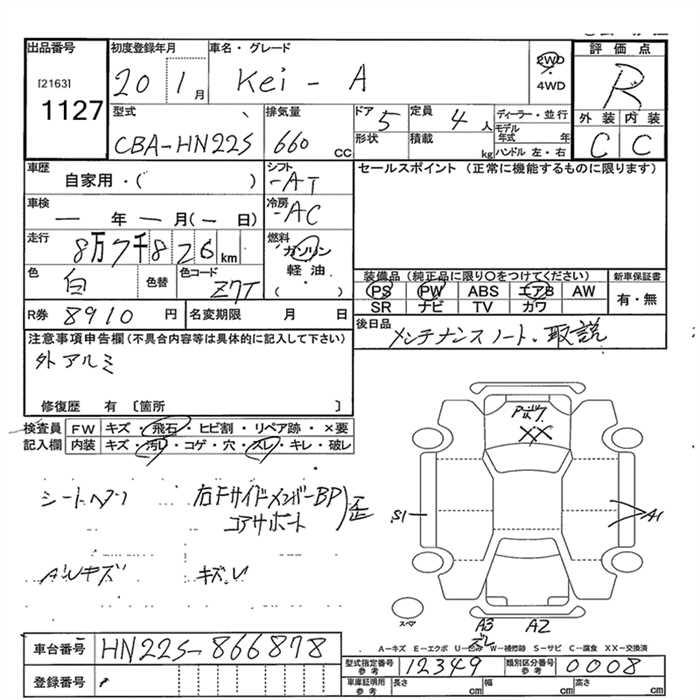 出品番号 初度登録年月 車名・グレード 評価点
[2163]
1127
20 1月 Kei - A 2WD 4WD R
型式 排気量 ドア 定員 ディーラー・並行 外装 内装
CBA-HN22S 660 cc 5 4人 モデル年式 年 C C
形状 積載 kg ハンドル 左・右
車歴 シフト セールスポイント(正常に機能するものに限ります)
自家用・( ) -AT
車検 冷房
ー 年 ー 月(ー 日) -AC
走行 燃料
8万7千826km ガソリン
軽油
( )
色 色替 色コード 装備品(純正品に限り○をつけてください) 新車保証書
白 Z7T PS PW ABS エアB AW 有・無
SR ナビ TV カワ
R券 8910 円 名変期限 月 日 後日品
メンテナンスノート・取説
注意事項申告欄(不具合内容等は具体的に記入して下さい)
外アルミ
修復歴 有 〔箇所 〕
検査員 FW キズ・飛石・ヒビ割・リペア跡・×要
記入欄 内装 キズ・汚レ・コゲ・穴・スレ・キレ・破レ
XX
シートヘタリ 右FサイドメンバーBP 歪
コアサポート
S1 A1
キズレ
スペア
A3 A2
ズレ
車台番号 HN22S-866878
A-キズ E-エクボ U-凹み W-補修跡 S-サビ C-腐食 XX-交換済
型式指定番号 参考 12349 類別区分番号 参考 0008
登録番号
車庫証明用 参考 長さ cm 幅 cm 高さ cm